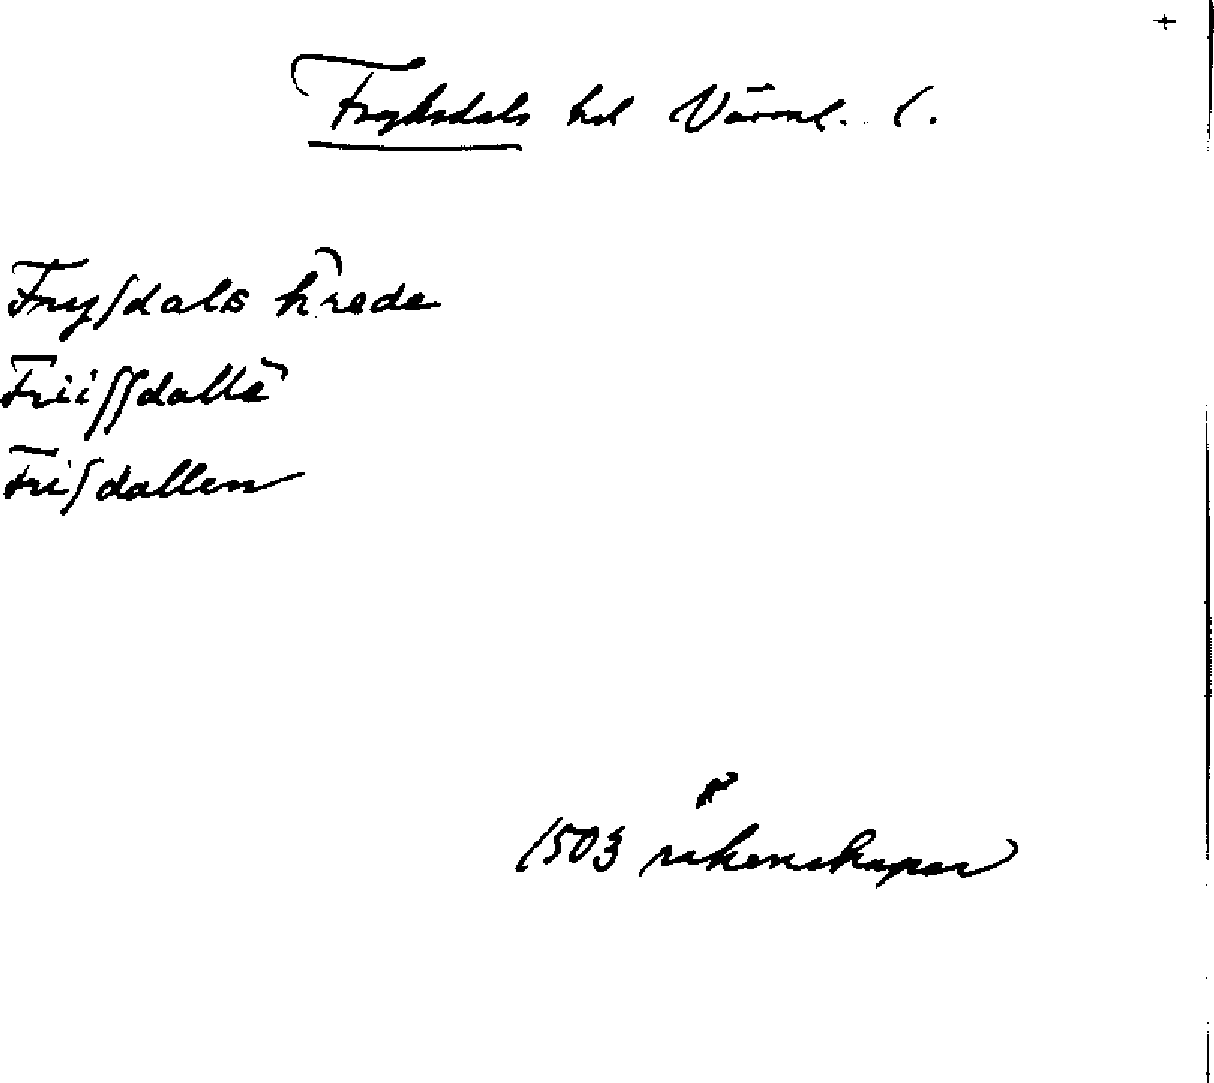 +
Fryksdals hd Värml. l.
Fryſdals h̄rede
Friiſſdallē
Friſdallen
1503 räkenskaper